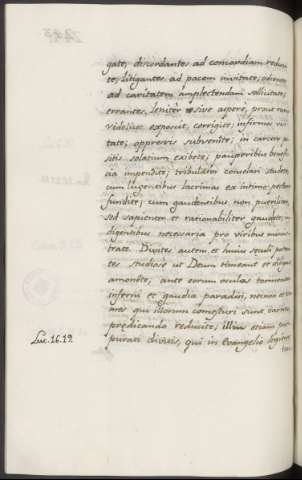 gate, discordantes ad concordiam reduci-
te, litigantes ad pacem invitate, odientes
ad caritatem amplectendam sollicitate,
errantes, leniter sive asperè, prout
videlicet exposcit, corrigite; infirmos visi-
tate; oppressis subvenite; in carcere po-
sitis solatium exibete, pauperibus benefi-
cia impendite; tribulatos consolari studete,
cum lugentibus lacrimas ex intimo pectore
fundite; cum gaudentibus non pueriliter,
sed sapienter et rationabiliter gaudete; in-
digentibus necessaria pro viribus minis-
trate. Divites autem et huius seculi poten-
tes studiose ut Deum timeant et diligant
amonete, ante eorum oculos tormenta
inferni et gaudia paradisi, necnon et
qui illorum sunt
predicando reducite; illius etiam pur-
Luc. 16.19.
purati divitis, qui in Evangelio legitur